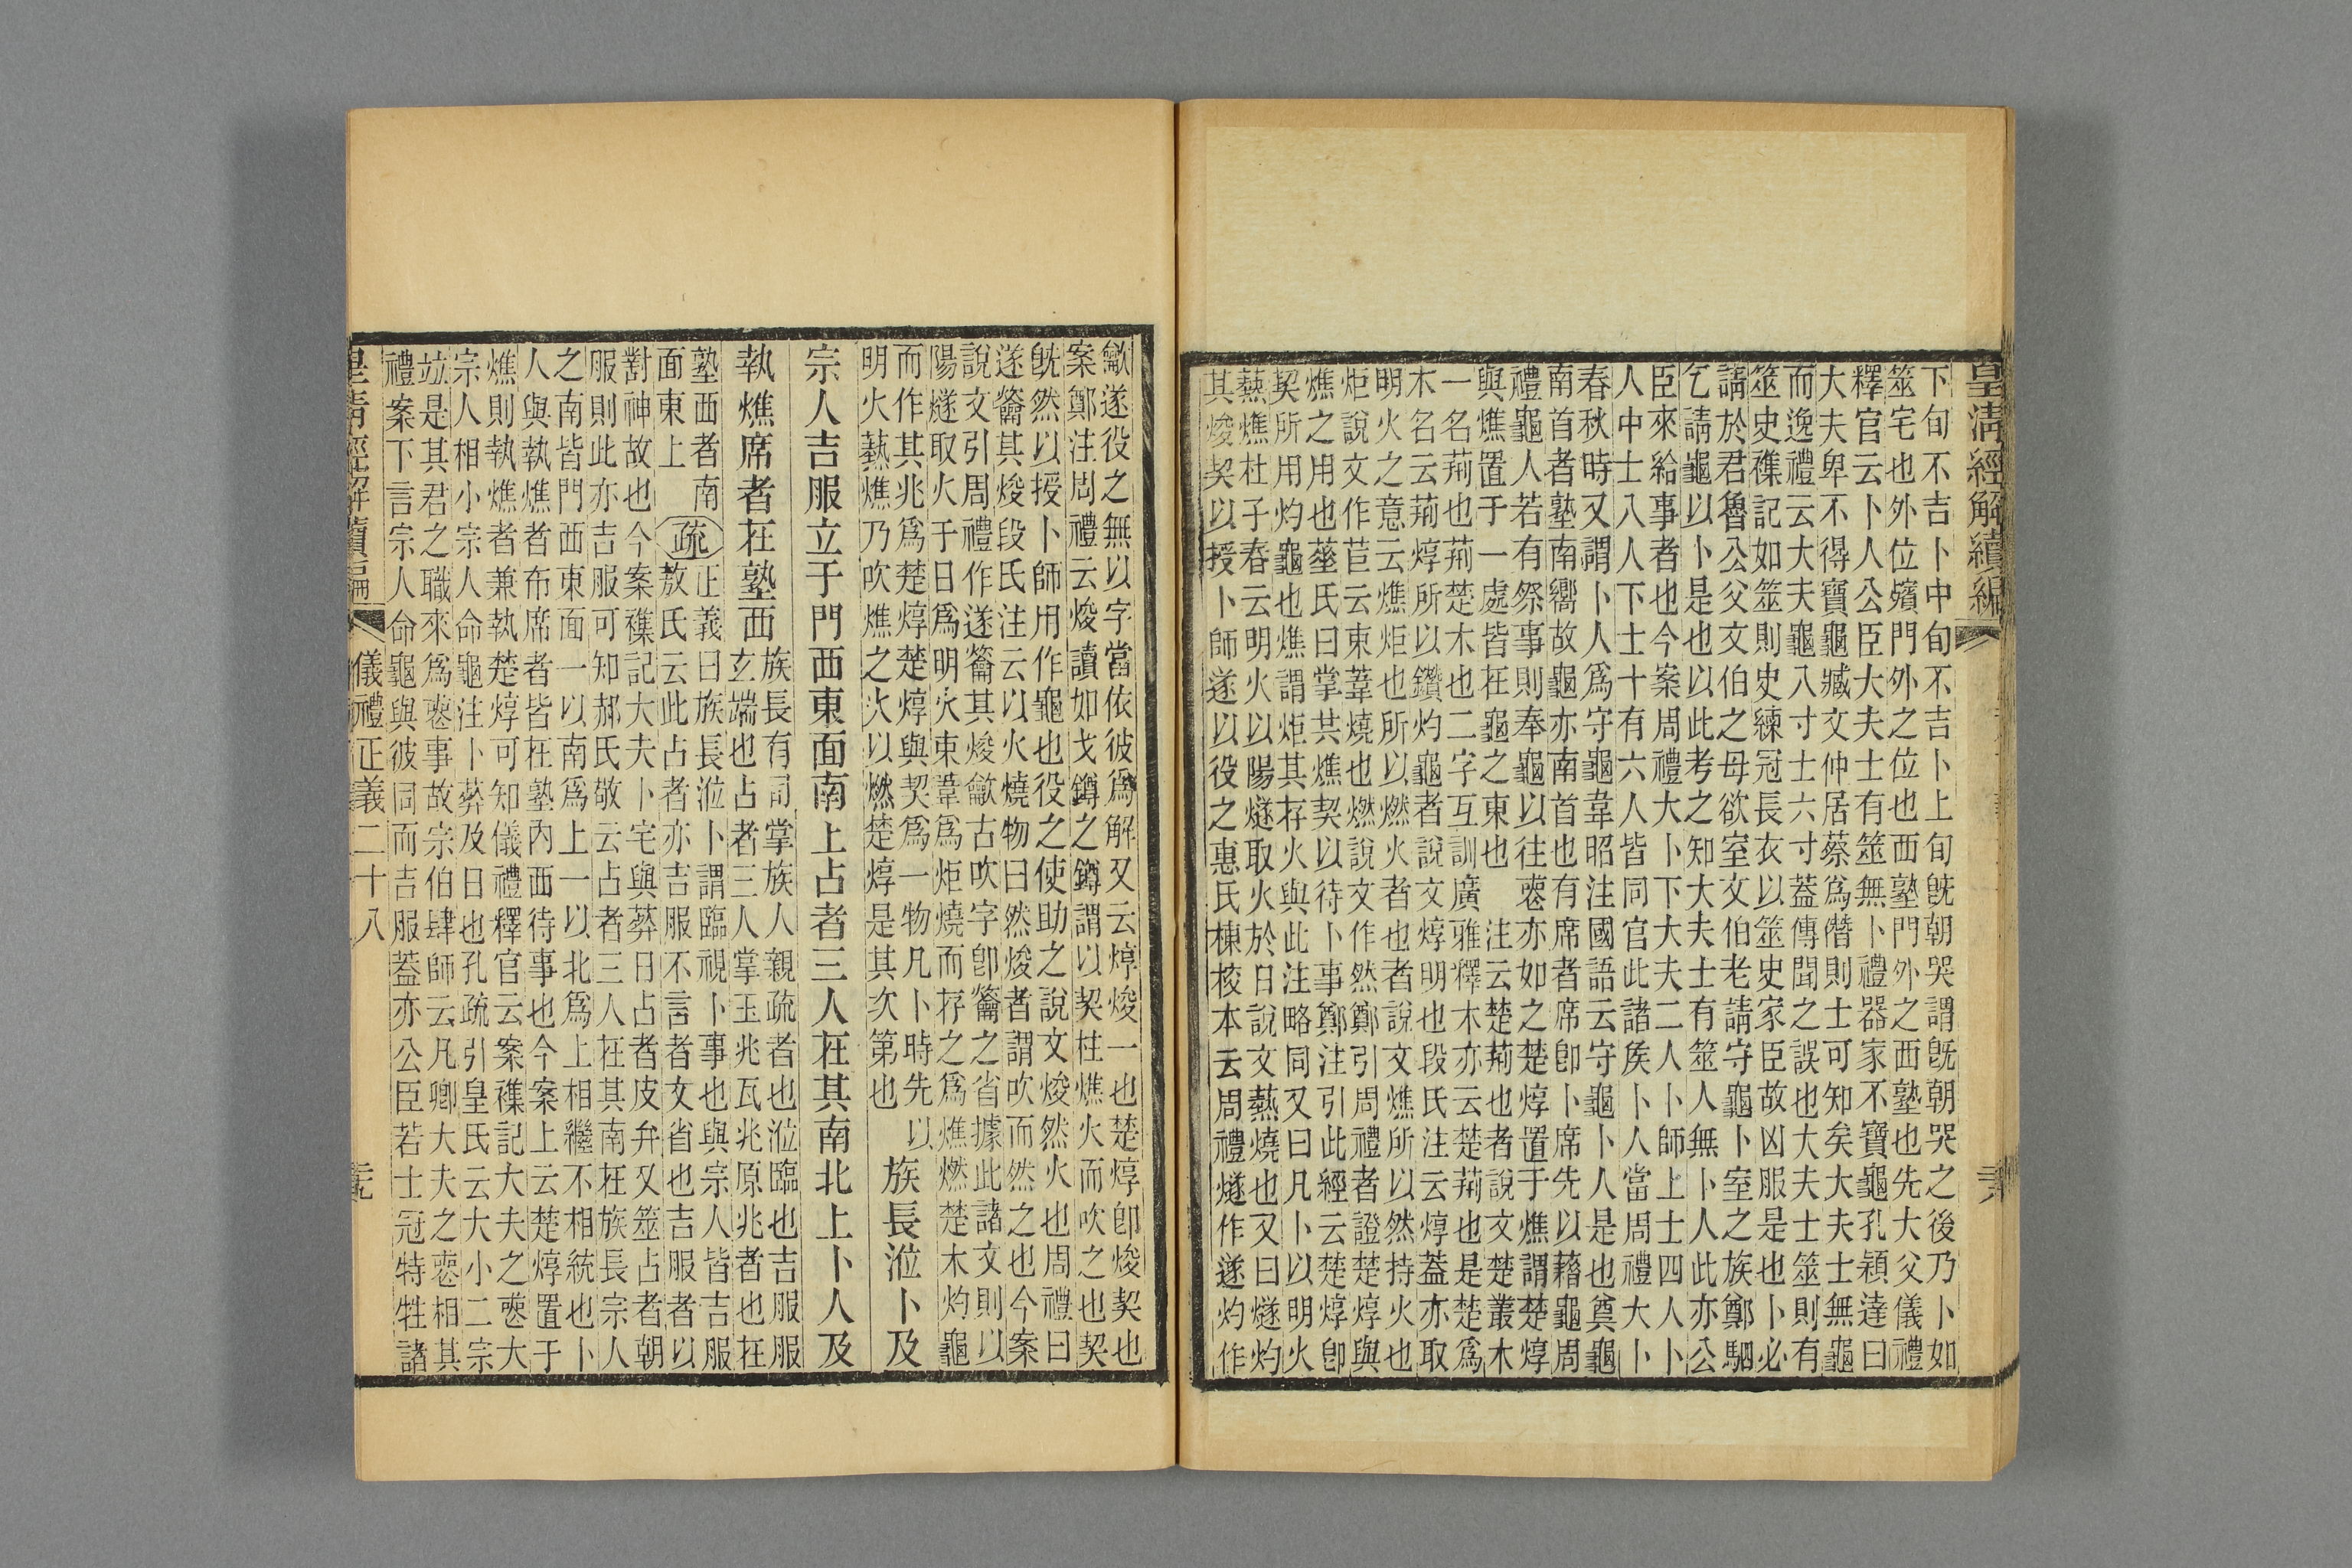 皇清經解續編
下旬不吉卜中旬不吉卜上旬旣朝哭謂旣朝哭之後乃卜如
筮宅也外位殯門外之位也西塾門外之西塾也先大父儀禮
釋官云卜人公臣大夫士有筮無卜禮器家不寶龜孔穎達曰
大夫卑不得寶龜臧文仲居蔡爲僭則士可知矣大夫士無龜
而逸禮云大夫龜八寸士六寸蓋傳聞之誤也大夫士筮則有
筮史襍記如筮則史練冠長衣以筮史家臣故凶服是也卜必
請於君魯公父文伯之母欲室文伯老請守龜卜室之族鄭駟
乞請龜以卜是也以此考之知大夫士有筮人無卜人此亦公
臣來給事者也今案周禮大卜下大夫二人卜師上士四人卜
人中士八人下士十有六人皆同官此諸矦卜人當周禮大卜
春秋時又謂卜人爲守龜韋昭注國語云守龜卜人是也奠龜
南首者塾南嚮故龜亦南首也有席者席卽卜席先以藉龜周
禮龜人若有祭事則奉龜以往喪亦如之楚焞置于燋謂楚焞
與燋置于一處皆在龜之東也　注云楚荊也者說文楚叢木
一名荊也荊楚木也二字互訓廣雅釋木亦云楚荊也是楚爲
木名云荊焞所以鑽灼龜者說文焞明也段氏注云焞蓋亦取
明火之意云燋炬也所以燃火者也者說文燋所以然持火也
炬說文作苣云東葦燒也燃說文作然鄭引周禮者證楚焞與
燋之用也菙氏曰掌共燋契以待卜事鄭注引此經云楚焞卽
契所用灼龜也燋謂炬其存火與此注略同又曰凡卜以明火
爇燋杜子春云明火以陽燧取火於日說文爇燒也又曰燧灼
其焌契以授卜師遂以役之惠氏棟校本云周禮燧作遂灼作
龡遂役之無以字當依彼爲解又云焞焌一也楚焞卽焌契也
案鄭注周禮云焌讀如戈鐏之鐏謂以契柱燋火而吹之也契
旣然以授卜師用作龜也役之使助之說文焌然火也周禮曰
遂籥其焌段氏注云以火燒物曰然焌者謂吹而然之也今案
說文引周禮作遂籥其焌龡古吹字卽籥之省據此諸文則以
陽燧取火于日爲明火束葦爲炬燒而存之爲燋燃楚木灼龜
而作其兆爲楚焞楚焞與契爲一物凡卜時先以
明火爇燋乃吹燋之火以燃楚焞是其次第也
族長涖卜及
宗人吉服立于門西東面南上占者三人在其南北上卜人及
執燋席者在塾西
族長有司掌族人親疏者也涖臨也吉服服
玄端也占者三人掌玉兆瓦兆原兆者也在
塾西者南
面東上
疏
正義曰族長涖卜謂臨視卜事也與宗人皆吉服
敖氏云此占者亦吉服不言者文省也吉服者以
對神故也今案襍記大夫卜宅與葬日占者皮弁又筮占者朝
服則此亦吉服可知郝氏敬云占者三人在其南在族長宗人
之南皆門西東面一以南爲上一以北爲上相繼不相統也卜
人與執燋者布席者皆在塾內西待事也今案上云楚焞置于
燋則執燋者兼執楚焞可知儀禮釋官云案襍記大夫之喪大
宗人相小宗人命龜注卜葬及日也孔疏引皇氏云大小二宗
竝是其君之職來爲喪事故宗伯肆師云凡卿大夫之喪相其
禮案下言宗人命龜與彼同而吉服蓋亦公臣若士冠特牲諸
皇清經解續編
儀禮正義二十八